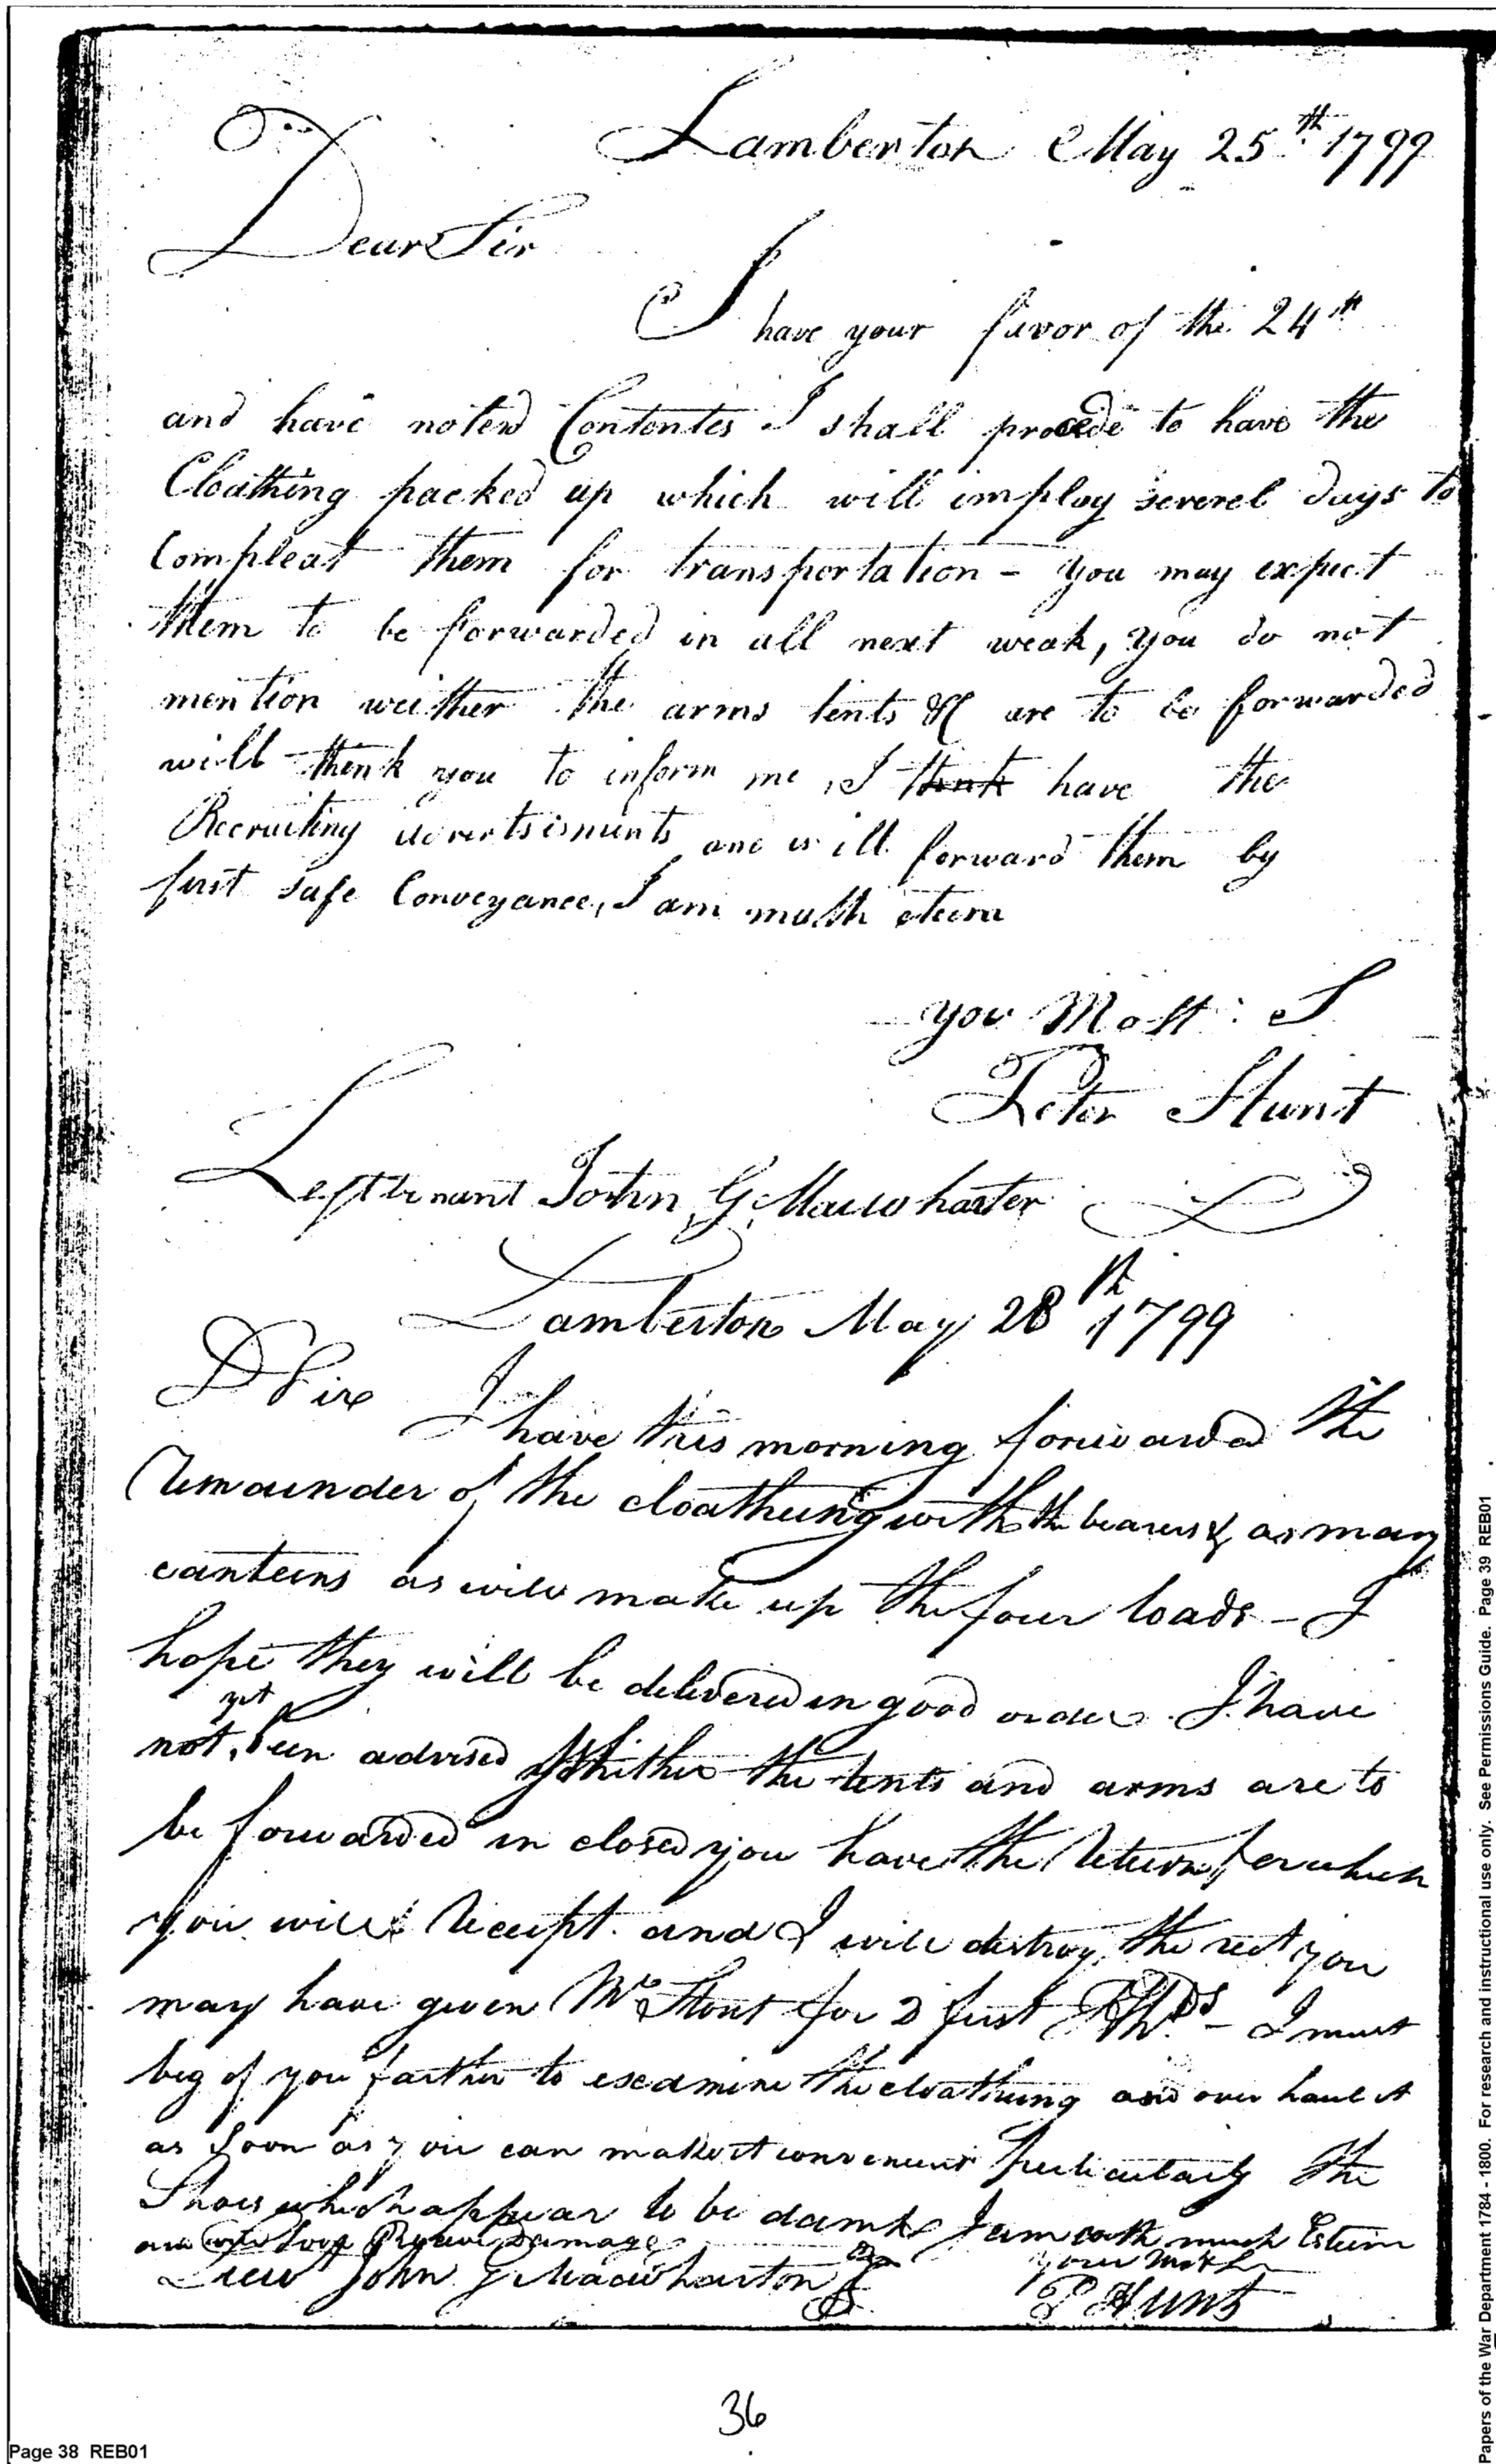 Lamberton May 25th 1799
Dear Sir
I have your favor of the 24th
and have noted Contentes I shall procede to have the
Cloathing packed up which will imploy severel days to
Compleat them for transportation – you may expect
them to be forwarded in all next weak, you do not
mention weither the arms tents &C are to be forwarded
will thenk you to inform me, I think have the
Recruiting advertsisments and will forward them by
furst safe Conveyance, I am muth steem
you Most: S
Peter Hunt
Lefttenant John G Macwharter
Lamberton May 28th 1799
D Sir I have this morning forwarded the
Remainder of the cloatheing with the bearers & as many
canteens as will make up the four loads – I
hope they will be delivered in good order. I have
yet
not, been advised Whither the tents and arms are to
be forwarded in closed you have the Return for which
you will Receipt and I will destroy the rect you
may have given Mr Stout for 2 first – I must
beg of you farther to examine the cloathing and over haul it
as soon as you can make it convenient Perticularly the
Shoes which appear to be damp I am with much Esteem
are Damage
your Mot H
Lieu John G Macwharton
P Hunt
36
Page 38 REB01
Papers of the War Department 1784 - 1800. For research and instructional use only. See Permissions Guide. Page 39 REB01